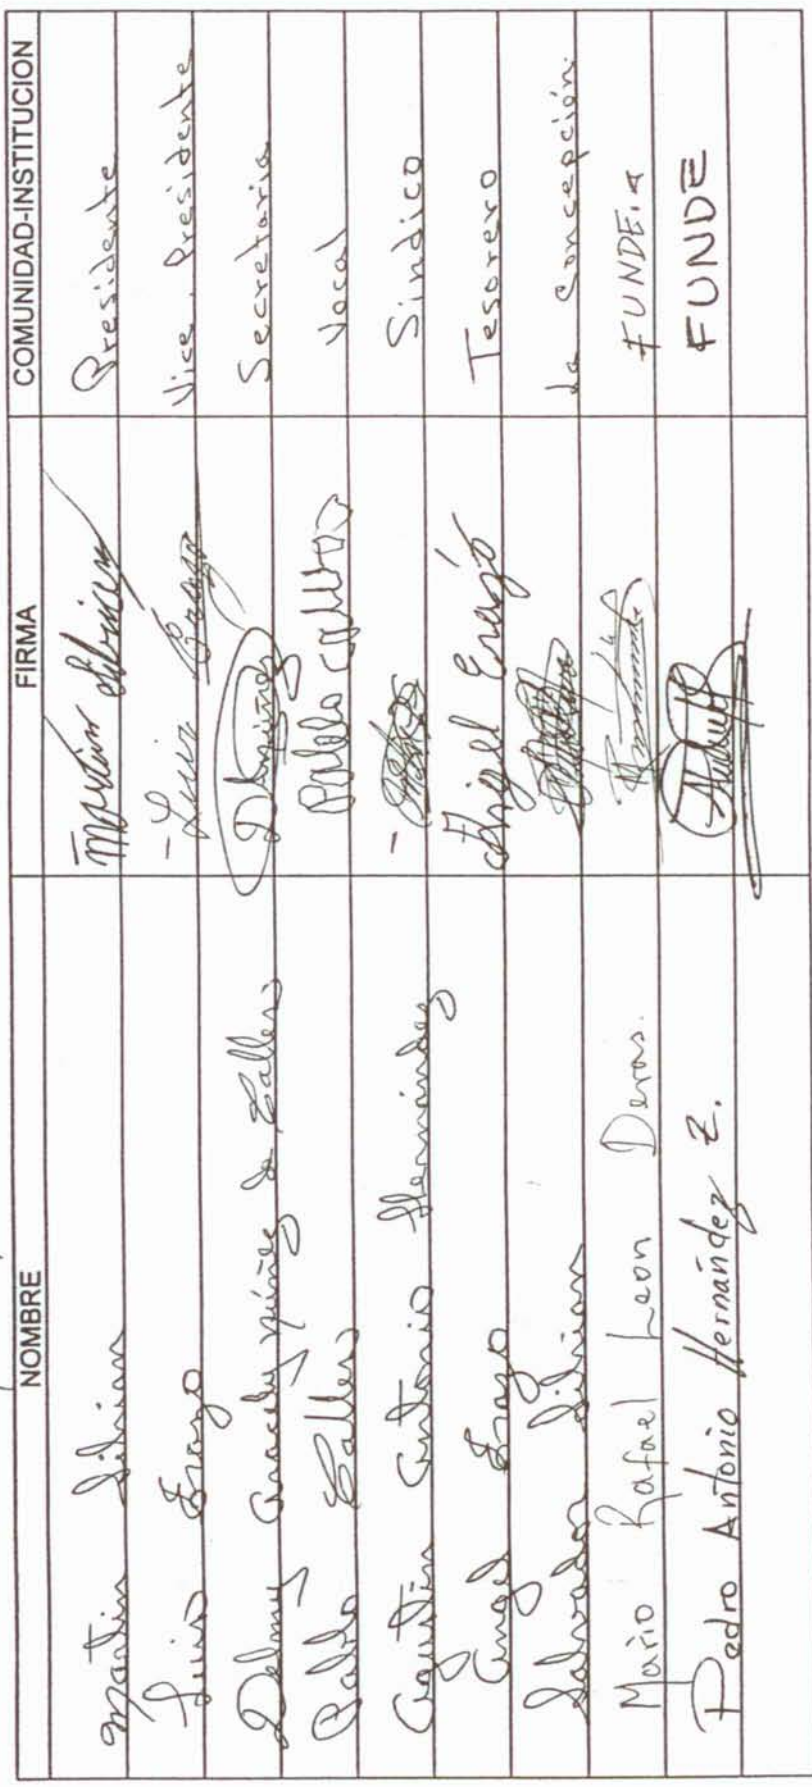 NOMBRE FIRMA COMUNIDAD-INSTITUCION
Martin Sibrian Martin Sibrian Presidente
Luis Erazo Luis Erazo Vice. Presidente
Delmy Aracely Núñez de Calles DNúñez Secretaria
Pablo Calles Pablo Calles Vocal
Agustín Antonio Hernández Sindico
Angel Erazo Angel Erazo Tesorero
Salvador Sibrian La Concepción.
Mario Rafael Leon Deras. FUNDE
Pedro Antonio Hernández Z. FUNDE